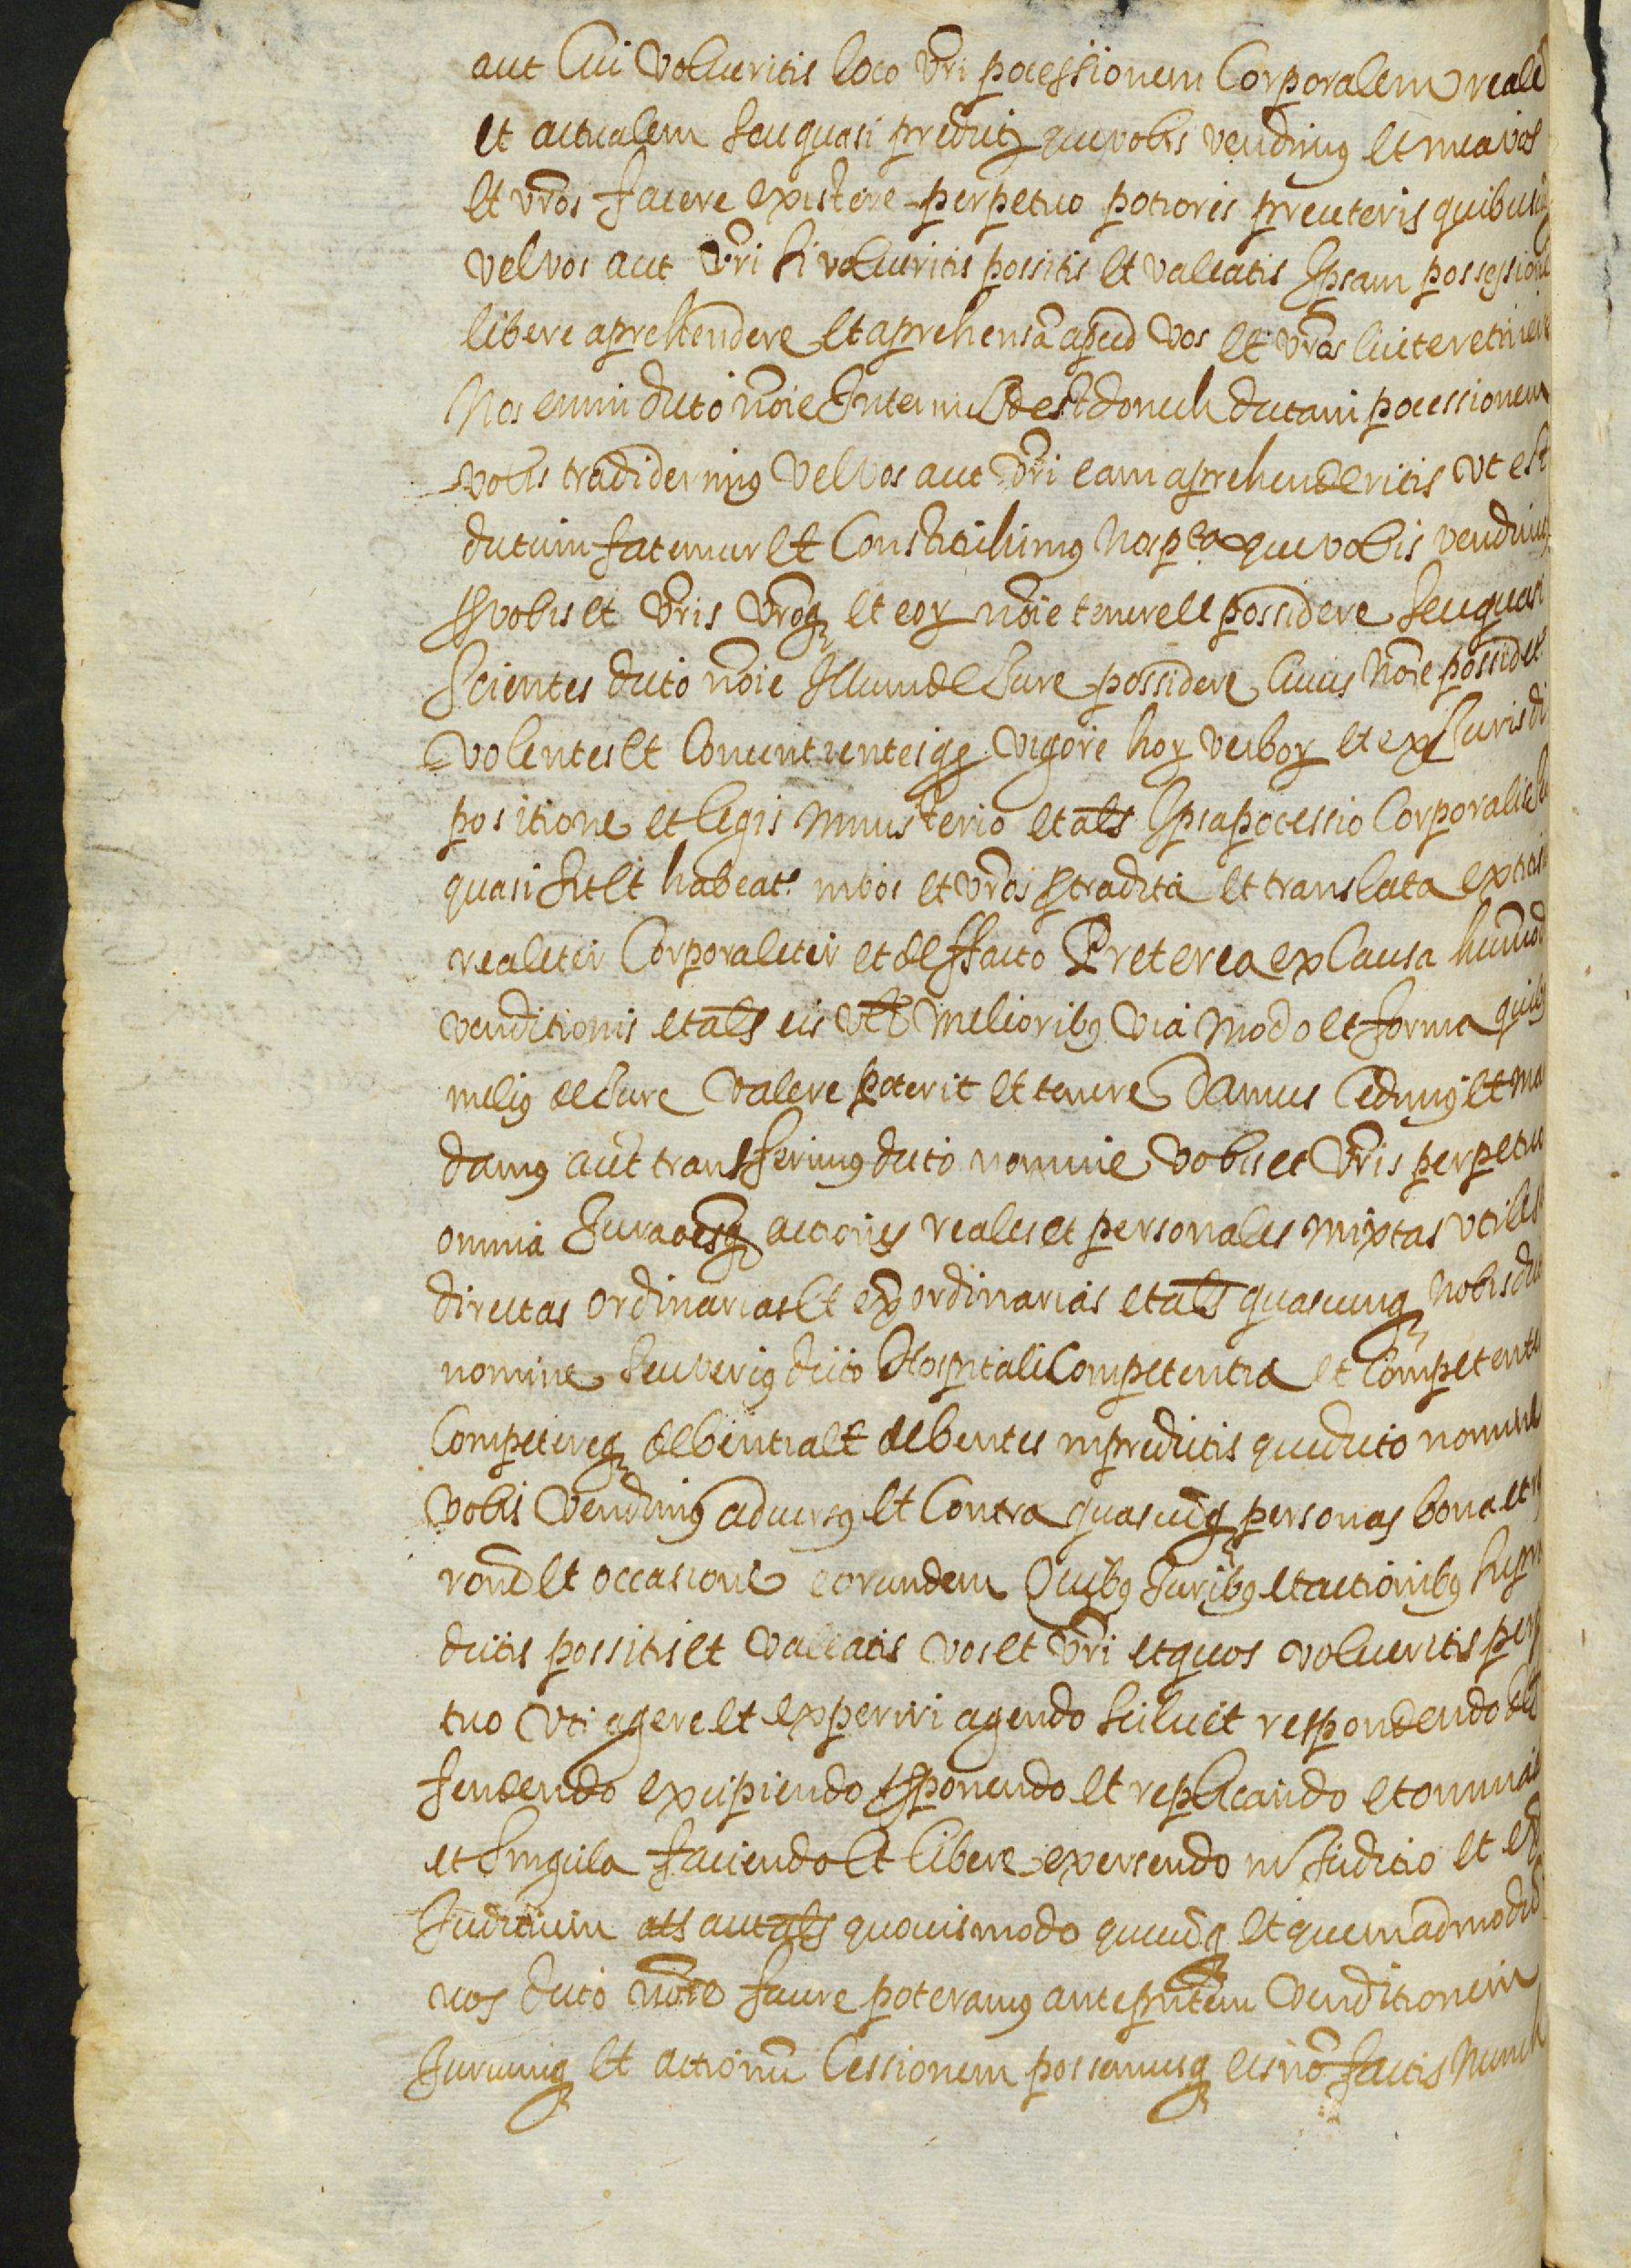 aut cui volueritis loco vr̃i pocessionem Corporalem realẽ
et actualem seu quasi predictꝝ que vobis vendimꝰ et in ea vos
et vr̃os facere existere perpetuo potioris pre ceteris quibusuis
vel vos aut vr̃i si volueritis possitis et valeatis Ipsam possessionẽ
libere aprehendere et aprehensã apud vos et vr̃os licite retinere
Nos enim dicto nõie Interim id est donech dictam pocessionem
vobis tradiderimꝰ vel vos aut vr̃i eam aprehenderitis vt est
dictum fatemur et Constituhimꝰ nos pĩa que vobis vendimꝰ
ꝓ vobis et vr̃is vr̃oqꝫ et eoꝝ nõie tenere et possidere seu quasi
Scientes dicto nõie Illum de Jure possidere cuius nõie possidetꝛ
volentes et Concentientesqꝫ vigore hoꝝ verboꝝ et ex Juris di
positione et legis ministerio et als̃ Ipsa pocessio Corporalis
quasi sit et habeatꝛ in vos et vr̃os ꝓ tradita et translata
realiter Corporaliter et de ffacto Preterea ex Causa huiusmod
venditionis et als̃ eis melioribꝰ via modo et forma quibꝰ
meliꝰ de Jure valere poterit et tenere Damus Cedimꝰ et man
damꝰ aut transferimꝰ dicto nomine vobis et vr̃is perpetuo
omnia Jura oẽsqꝫ actiones reales et personales mixtas vtiles
directas ordinarias et exordinarias et als̃ quascunqꝫ nobis dicto
nomine seu veriꝰ dicto Hospitali Competentia et Competentes
Competereqꝫ debentia et debentes in predictis que dicto nomine
vobis vendimꝰ aduersꝰ et Contra quascũqꝫ personas bona et
ron̄e et occasione eorundem Quibꝰ Juribꝰ et actionibꝰ supra
dictis possitis et valeatis vos et vr̃i et quos volueritis perpe
tuo vti agere et experiri agendo scilicet respondendo def
fendendo excipiendo ꝓponendo et replicando et omnia
et singula faciendo et libere exersendo in Juditio et ex
Juditium als aut als̃ quouis modo quicũqꝫ et quemadmodũ
nos dicto nõie facere poteramꝰ ante pñtem venditionem
Juriumqꝫ et actionũ Cessionem possemusqꝫ eis nõ factis nunch